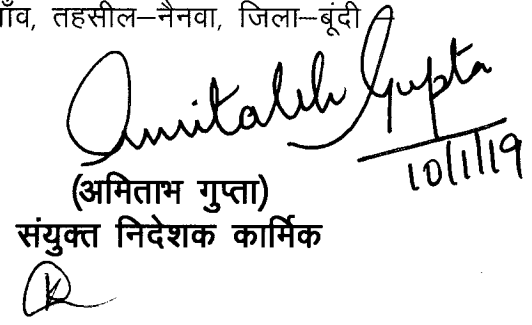 ाँव, तहसील–नैनवा, जिला–बूंदी
Amitabh Gupta
10/1/19
(अमिताभ गुप्ता)
संयुक्त निदेशक कार्मिक